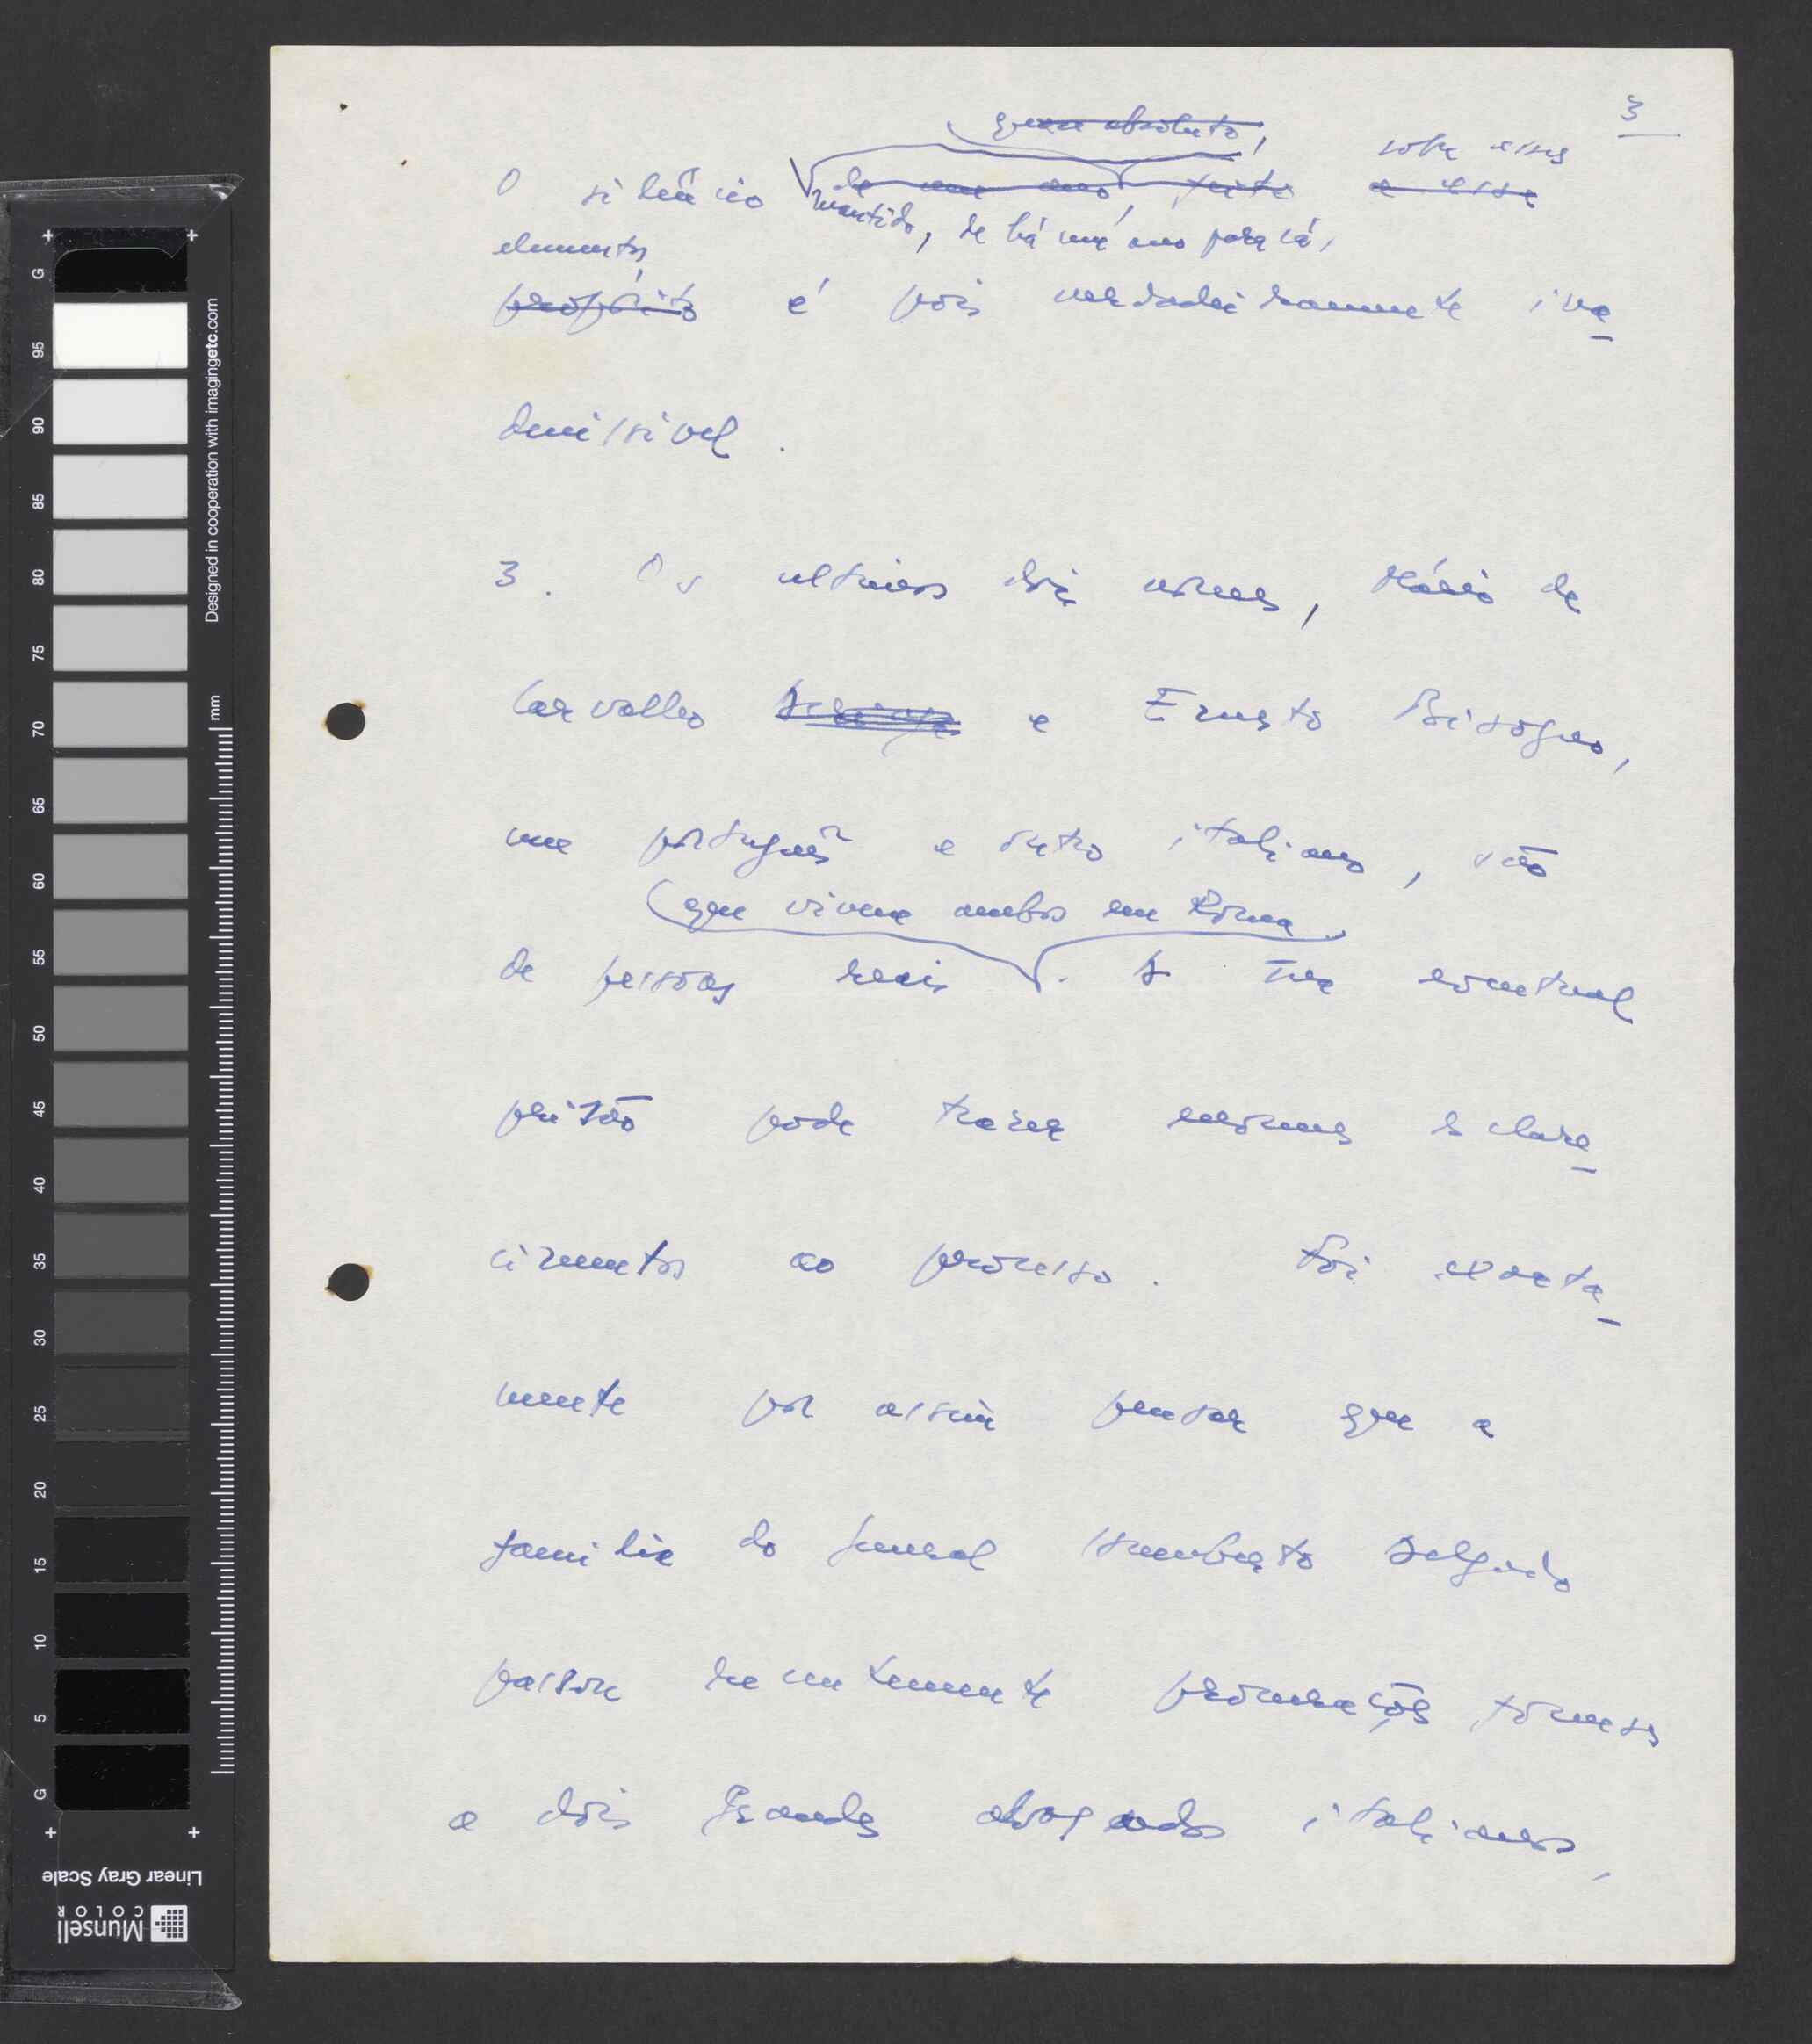 3
quase absoluto,
O silêncio de um ano, feito a esse
sobre esses
mantido, de há um ano para cá,
elementos,
propósito é pois verdadeiramente ina_
dmissivel.
3. Os ultimos dois nomes, Mário de
Carvalho e Ernesto Bisogno,
um português e outro italiano, são
(que vivem ambos em Roma)
de pessoas reais. A sua eventual
prisão pode trazer enormes esclare_
cimentos ao processo. Foi exacta_
mente por assim pensar que a
familia do General Humberto Delgado
passou recentemente procurações forenses
a dois grandes advogados italianos,
Designed in cooperation with imagingetc.com
mm
G
95
90
85
80
75
70
65
60
55
50
45
40
35
30
25
20
15
10
5
G
Linear Gray Scale
Munsell
COLOR